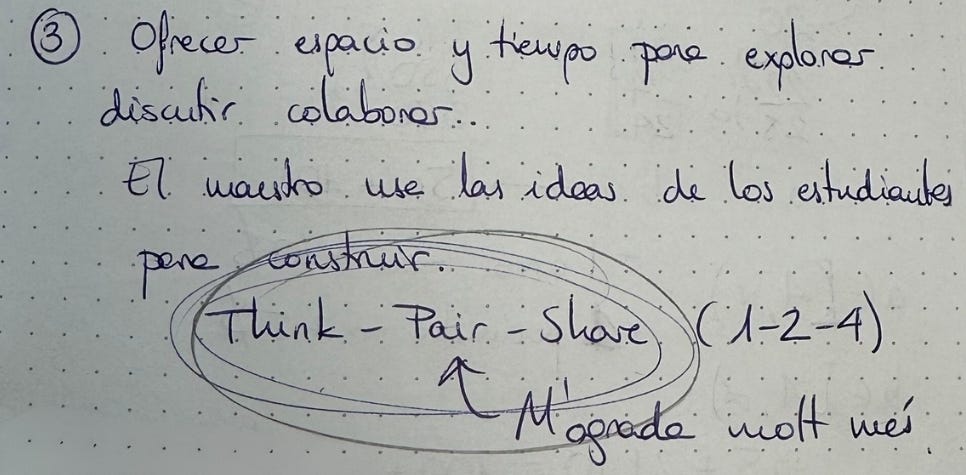 ③ Ofrecer espacio y tiempo para explorar
discutir colaborar...
El maestro use las ideas de los estudiantes
para construir.
Think - Pair - Share (1-2-4)
M'agrada molt més